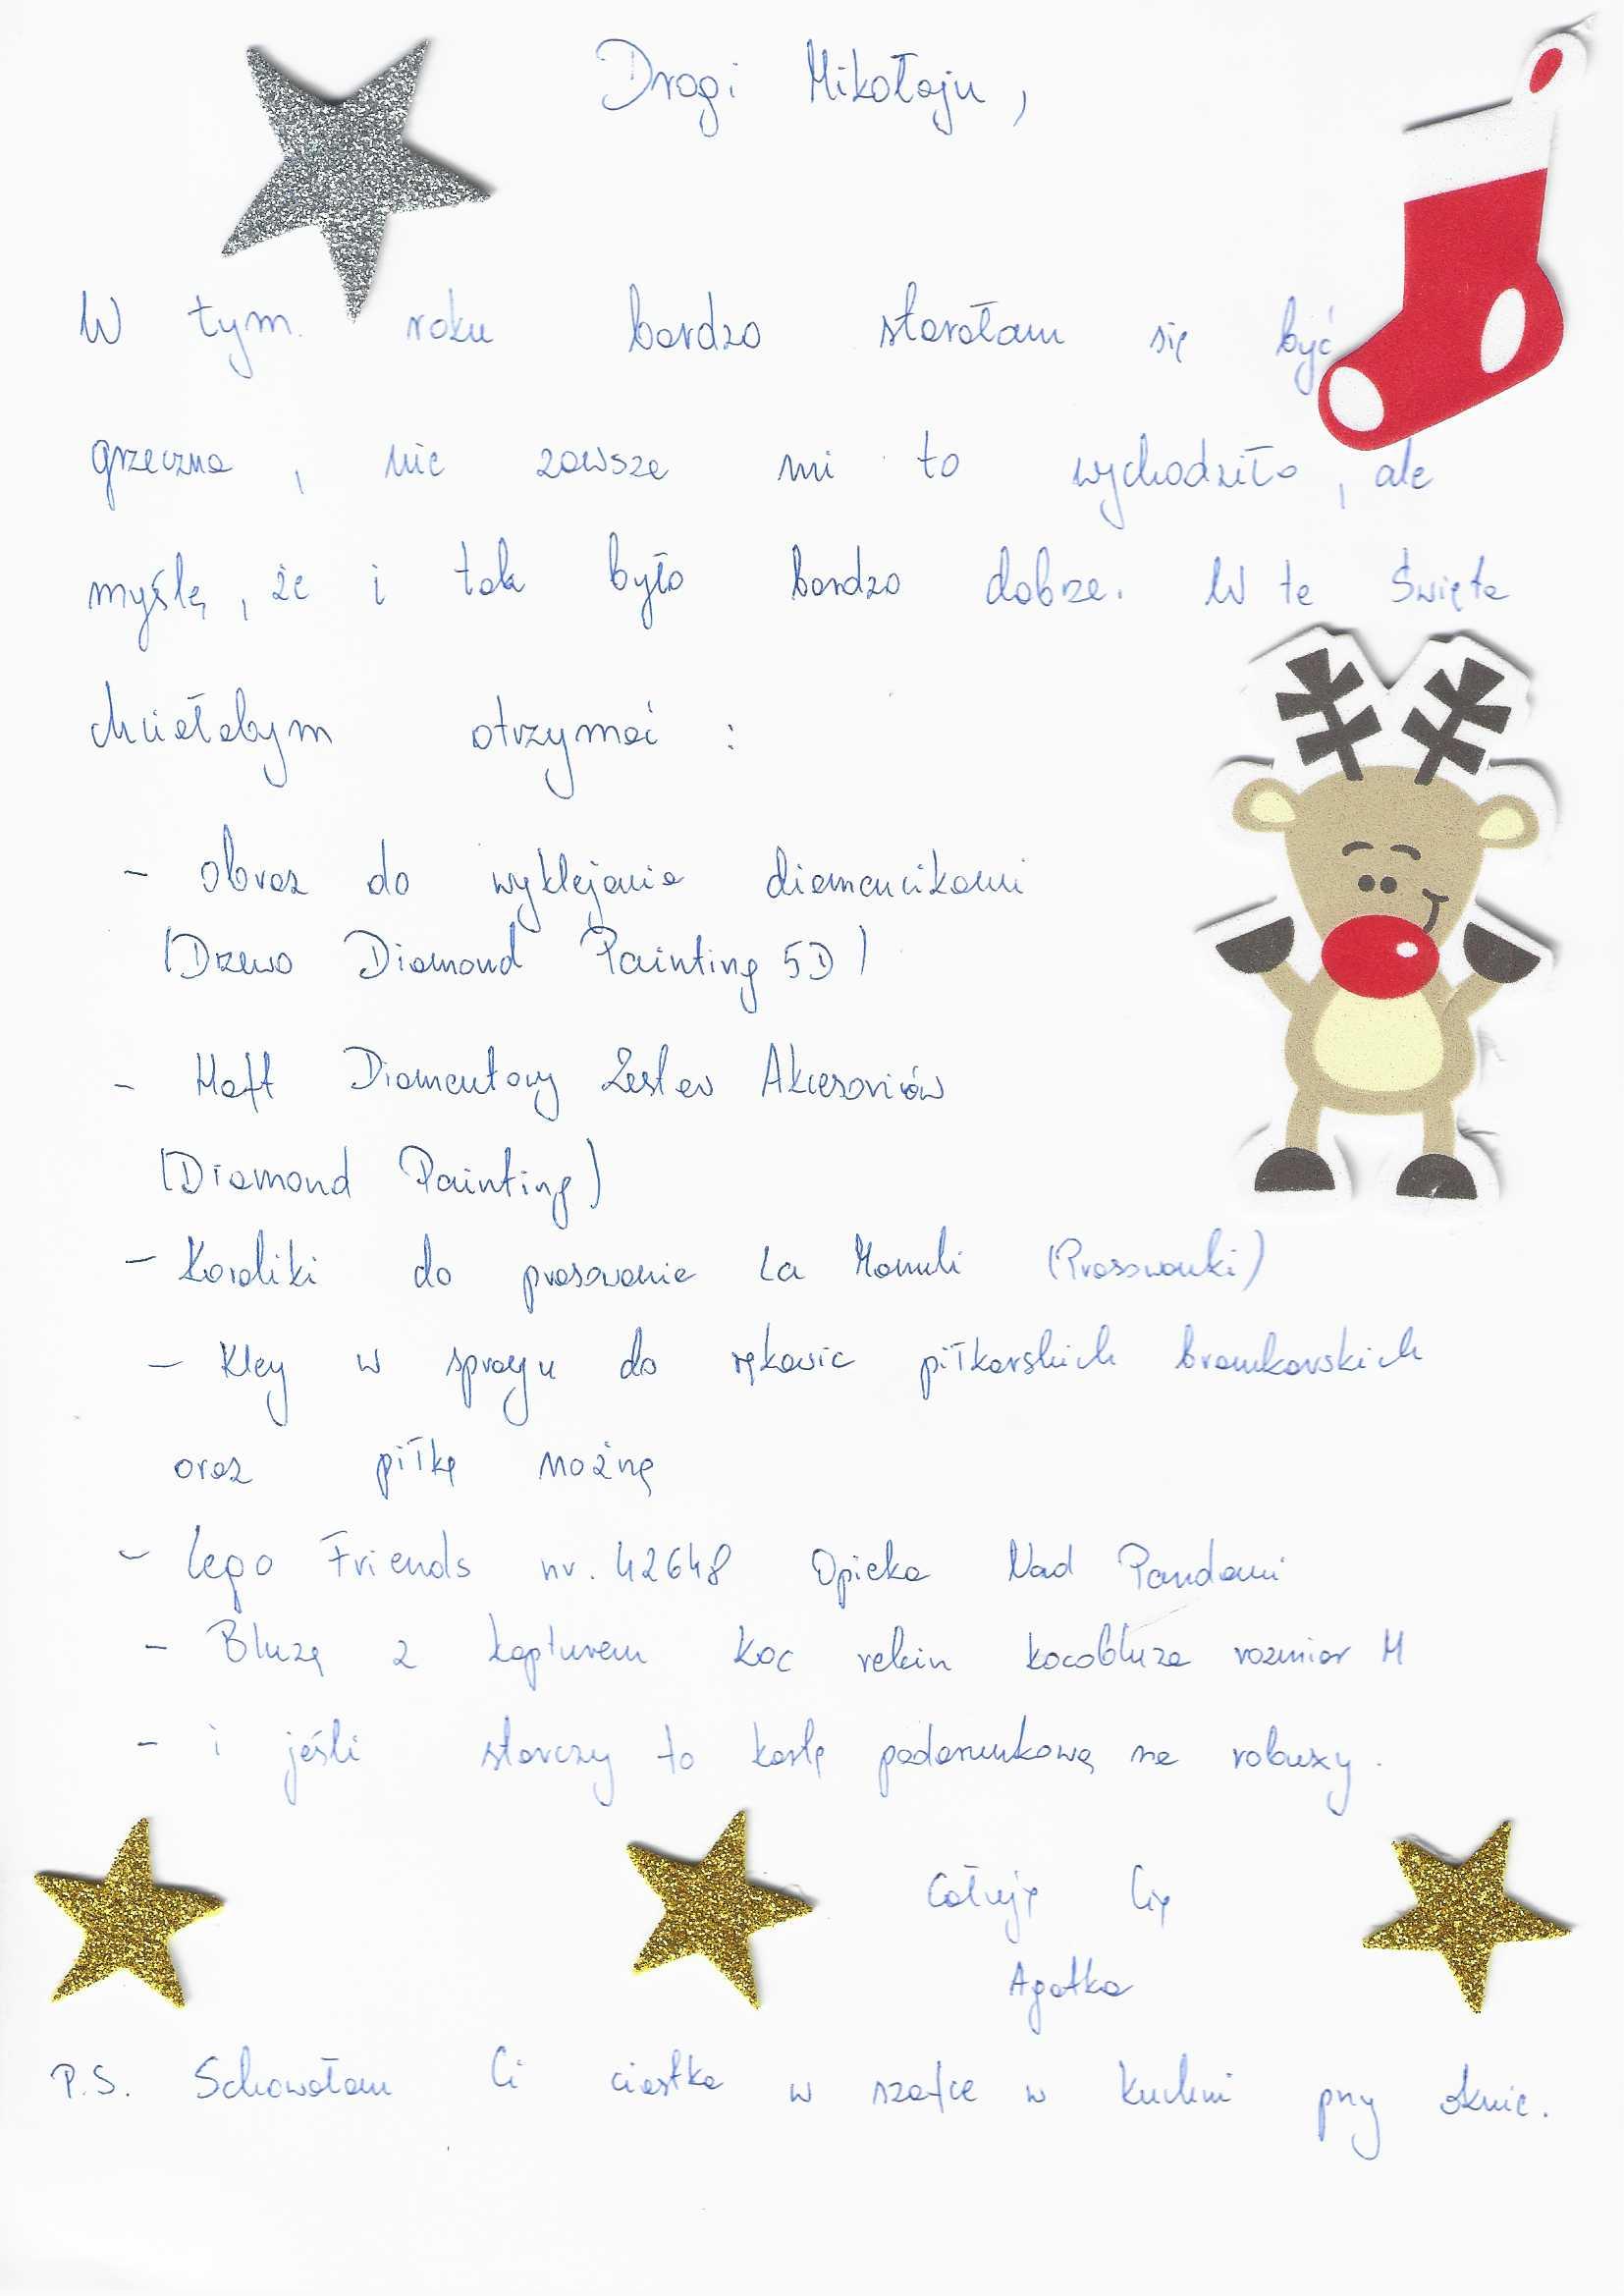 Drogi Mikołaju,
W tym roku bardzo starałam się być
grzeczna, nie zawsze mi to wychodziło, ale
myślę, że i tak było bardzo dobrze. W te Święta
chciałabym otrzymać :
- Obraz do wyklejania diamencikami
(Drzewo Diamond Painting 5D)
- Haft Diamentowy Zestaw Akcesoriów
(Diamond Painting)
- Koraliki do prasowania La Manuli (Prasowanki)
- Klej w sprayu do rękawic piłkarskich bramkarskich
oraz piłkę nożną
- Lego Friends nr. 42648 Opieka Nad Pandami
- Bluzę z kapturem koc rekin kocobluza rozmiar M
- i jeśli starczy to kartę podarunkową na robuxy.
Całuję Cię
Agatka
P.S. Schowałam Ci ciastka w szafce w kuchni przy oknie.